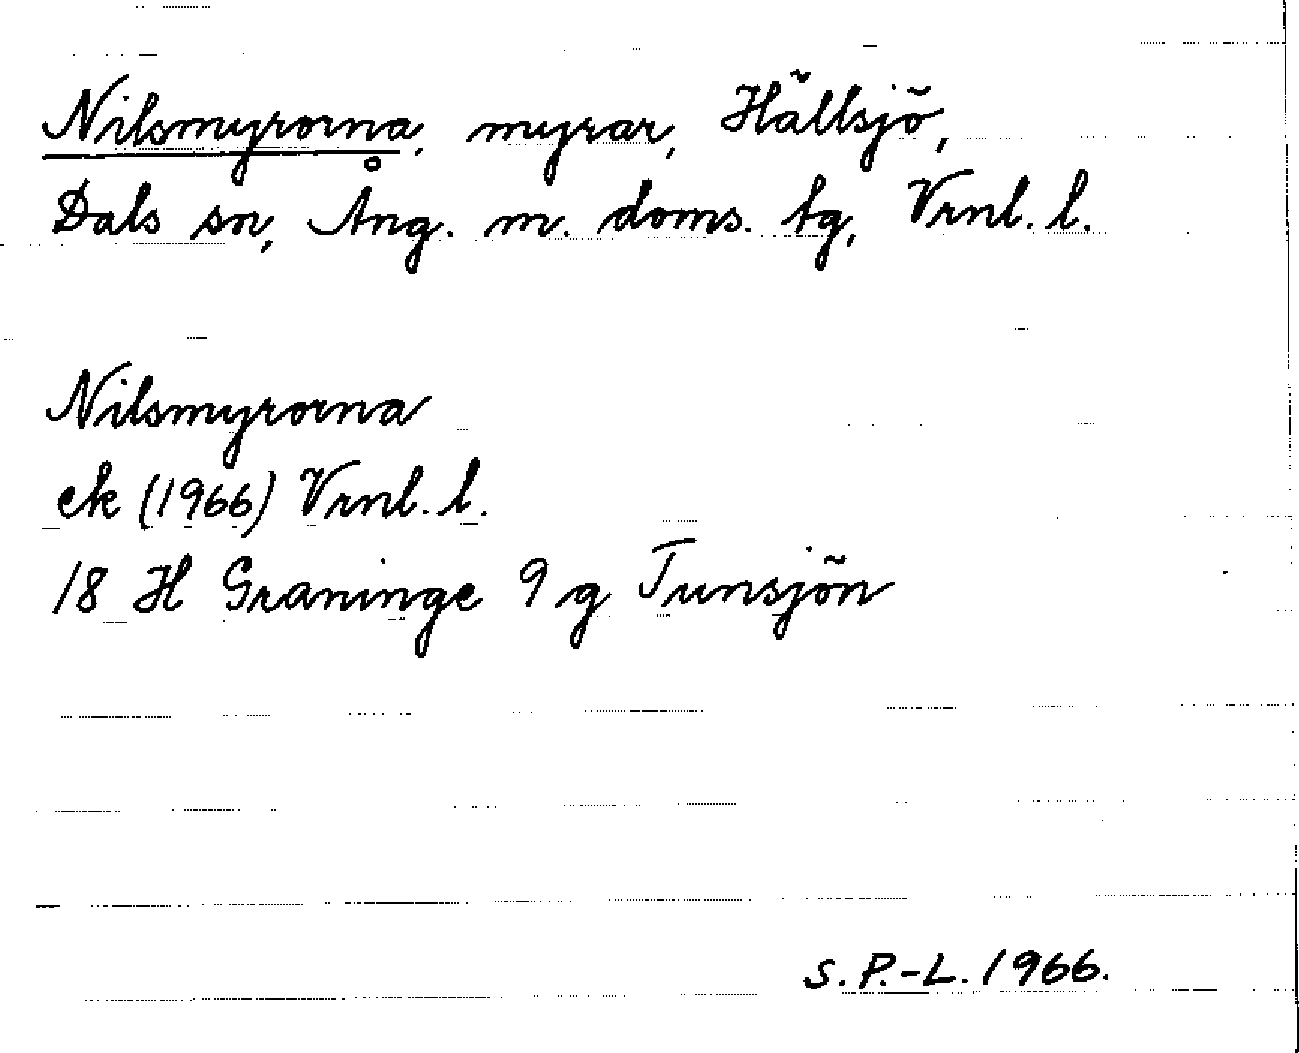 Nilsmyrorna, myrar, Hällsjö,
Dals sn, Ång. m. doms. tg, Vrnl. l.
Nilsmyrorna
ek (1966) Vrnl. l.
18 H Graninge 9 g Tunsjön
S. P.-L. 1966.